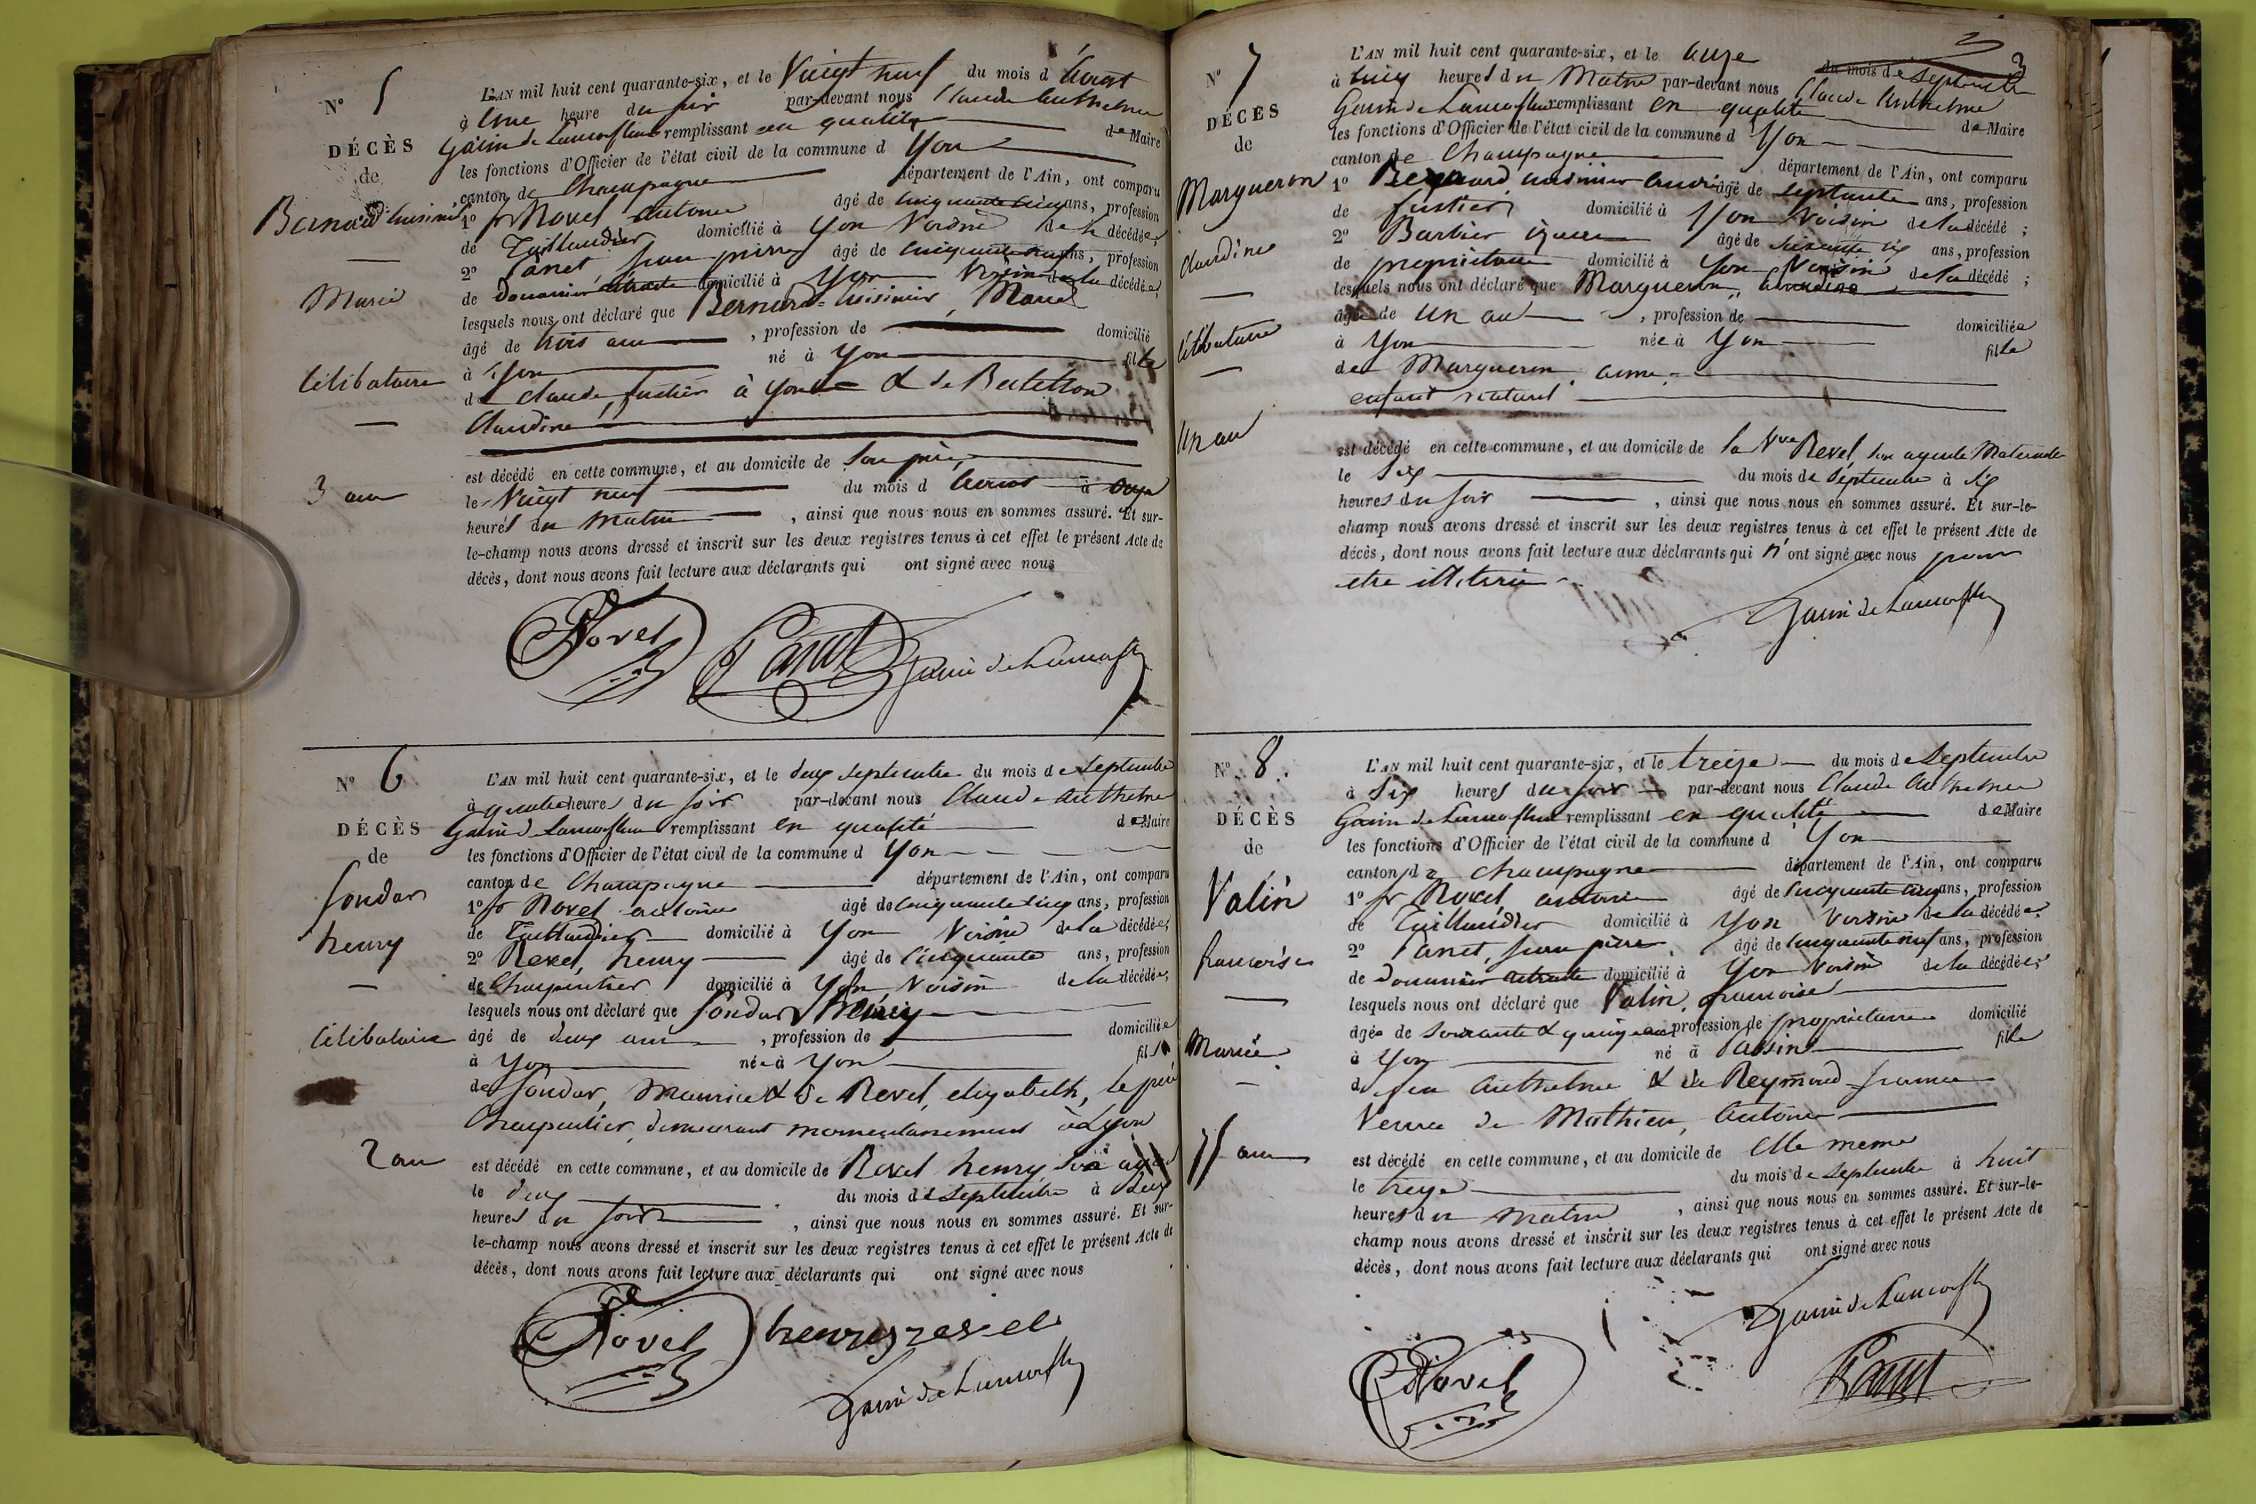 N° 5
DÉCÈS
de
Bernard Cuisinier
Marie
Célibataire
3 ans
L'AN mil huit cent quarante-six, et le Vingt neuf du mois d Aoust
à une heure du soir par-devant nous Claude Anthelme
remplissant en qualité de Maire
les fonctions d'Officier de l'état civil de la commune d Yon
canton de Champagne département de l'Ain, ont comparu
1° sr Novel antoine âgé de cinquante cinq ans, profession
de Taillandier domicilié à Yon Voisin de la décédée,
2° Panet, jean pierre âgé de cinquante neuf ans, profession
de douanier retraité domicilié à Yon Voisin de la décédée,
lesquels nous ont déclaré que Bernard-Cuisinier, Marie
âgé de trois ans , profession de domicilié
à Yon né à Yon fille
de Claude, fustier à Yon & de Berthetton
Claudine
est décédé en cette commune, et au domicile de son père,
le Vingt neuf du mois d Aoust à onze
heures du matin , ainsi que nous nous en sommes assuré. Et sur-
le-champ nous avons dressé et inscrit sur les deux registres tenus à cet effet le présent Acte de
décès, dont nous avons fait lecture aux déclarants qui ont signé avec nous
Novel Panet
N° 6
DÉCÈS
de
Sondar
henry
Célibataire
2 ans
L'AN mil huit cent quarante-six, et le deux septembre du mois de Septembre
à quatre heures du soir par-devant nous Claude anthelme
remplissant en qualité de Maire
les fonctions d'Officier de l'état civil de la commune d Yon
canton de Champagne département de l'Ain, ont comparu
1° sr Novel antoine âgé de cinquante cinq ans, profession
de Taillandier domicilié à Yon Voisin de la décédée,
2° Revel, henry âgé de Cinquante ans, profession
de Charpentier domicilié à Yon Voisin de la décédée,
lesquels nous ont déclaré que Sondar Henry
âgé de deux ans , profession de domiciliée
à Yon née à Yon fils
de Sondar, Maurice & de Revel, elizabeth, le père
Charpentier, demeurant momentanement à Lyon
est décédé en cette commune, et au domicile de Revel henry son ayeul
le deux du mois de Septembre à deux
heures du soir , ainsi que nous nous en sommes assuré. Et sur-
le-champ nous avons dressé et inscrit sur les deux registres tenus à cet effet le présent Acte de
décès, dont nous avons fait lecture aux déclarants qui ont signé avec nous
Novel henry revel
3
N° 7
DÉCÈS
de
Margueron
Claudine
Célibataire
Un an
L'AN mil huit cent quarante-six, et le onze du mois de Septembre
à cinq heures du Matin par-devant nous Claude Anthelme
remplissant en qualité de Maire
les fonctions d'Officier de l'état civil de la commune d Yon
canton de Champagne département de l'Ain, ont comparu
1° Bernard, cuisinier André âgé de septante ans, profession
de fustier domicilié à Yon Voisin de la décédé ;
2° Barbier âgé de soixante six ans, profession
de propriétaire domicilié à Yon Voisin de la décédé ;
lesquels nous ont déclaré que Margueron, Claudine
âgée de un an , profession de domiciliée
à Yon née à Yon fille
de Margueron
enfant naturel
est décédé en cette commune, et au domicile de la Vve Revel, son ayeule Maternelle
le Six du mois de Septembre à six
heures du soir , ainsi que nous nous en sommes assuré. Et sur-le-
champ nous avons dressé et inscrit sur les deux registres tenus à cet effet le présent Acte de
décès, dont nous avons fait lecture aux déclarants qui n'ont signé avec nous pour
etre illiterés
N° 8
DÉCÈS
de
Valin
francoise
Mariée
75 ans
L'AN mil huit cent quarante-six, et le treize du mois de Septembre
à Six heures du soir par-devant nous Claude Anthelme
remplissant en qualité de Maire
les fonctions d'Officier de l'état civil de la commune d Yon
canton de Champagne département de l'Ain, ont comparu
1° sr Novel, antoine âgé de Cinquante cinq ans, profession
de Taillandier domicilié à Yon Voisin de la décédée.
2° Panet, jean pierre âgé de Cinquante neuf ans, profession
de douanier retraité domicilié à Yon Voisin de la décédée;
lesquels nous ont déclaré que Valin, francoise
âgée de soixante & quinze ans profession de propriétaire domicilié
à Yon né à Passin fille
de feu Anthelme & de Reymond france
Veuve de Mathieu, Antoine
est décédé en cette commune, et au domicile de elle meme
le treize du mois de Septembre à huit
heures du Matin , ainsi que nous nous en sommes assuré. Et sur-le-
champ nous avons dressé et inscrit sur les deux registres tenus à cet effet le présent Acte de
décès, dont nous avons fait lecture aux déclarants qui ont signé avec nous
Novel Panet